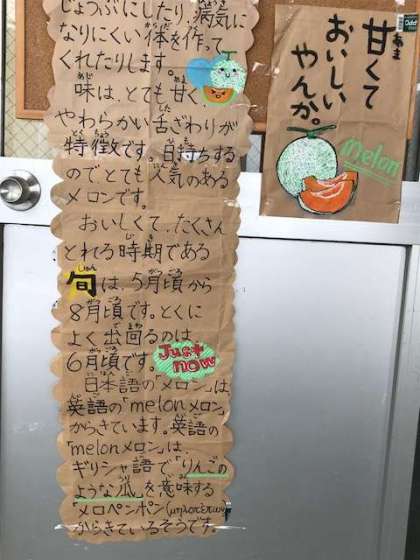 じょうぶにしたり、病気に
なりにくい体を作って
くれたりします。
味は、とても甘く、
やわらかい舌ざわりが
特徴です。日持ちする
のでとても人気のある
メロンです。
おいしくて、たくさん
とれる時期である
旬は、5月頃から
8月頃です。とくに
よく出回るのは
6月頃です。
Just now
日本語の「メロン」は、
英語の「melonメロン」
からきています。英語の
「melonメロン」は、
ギリシャ語で「りんごの
ような瓜」を意味する
「メロペンポン(
からきているそうです。
甘くて
おいしい
やんか。
melon